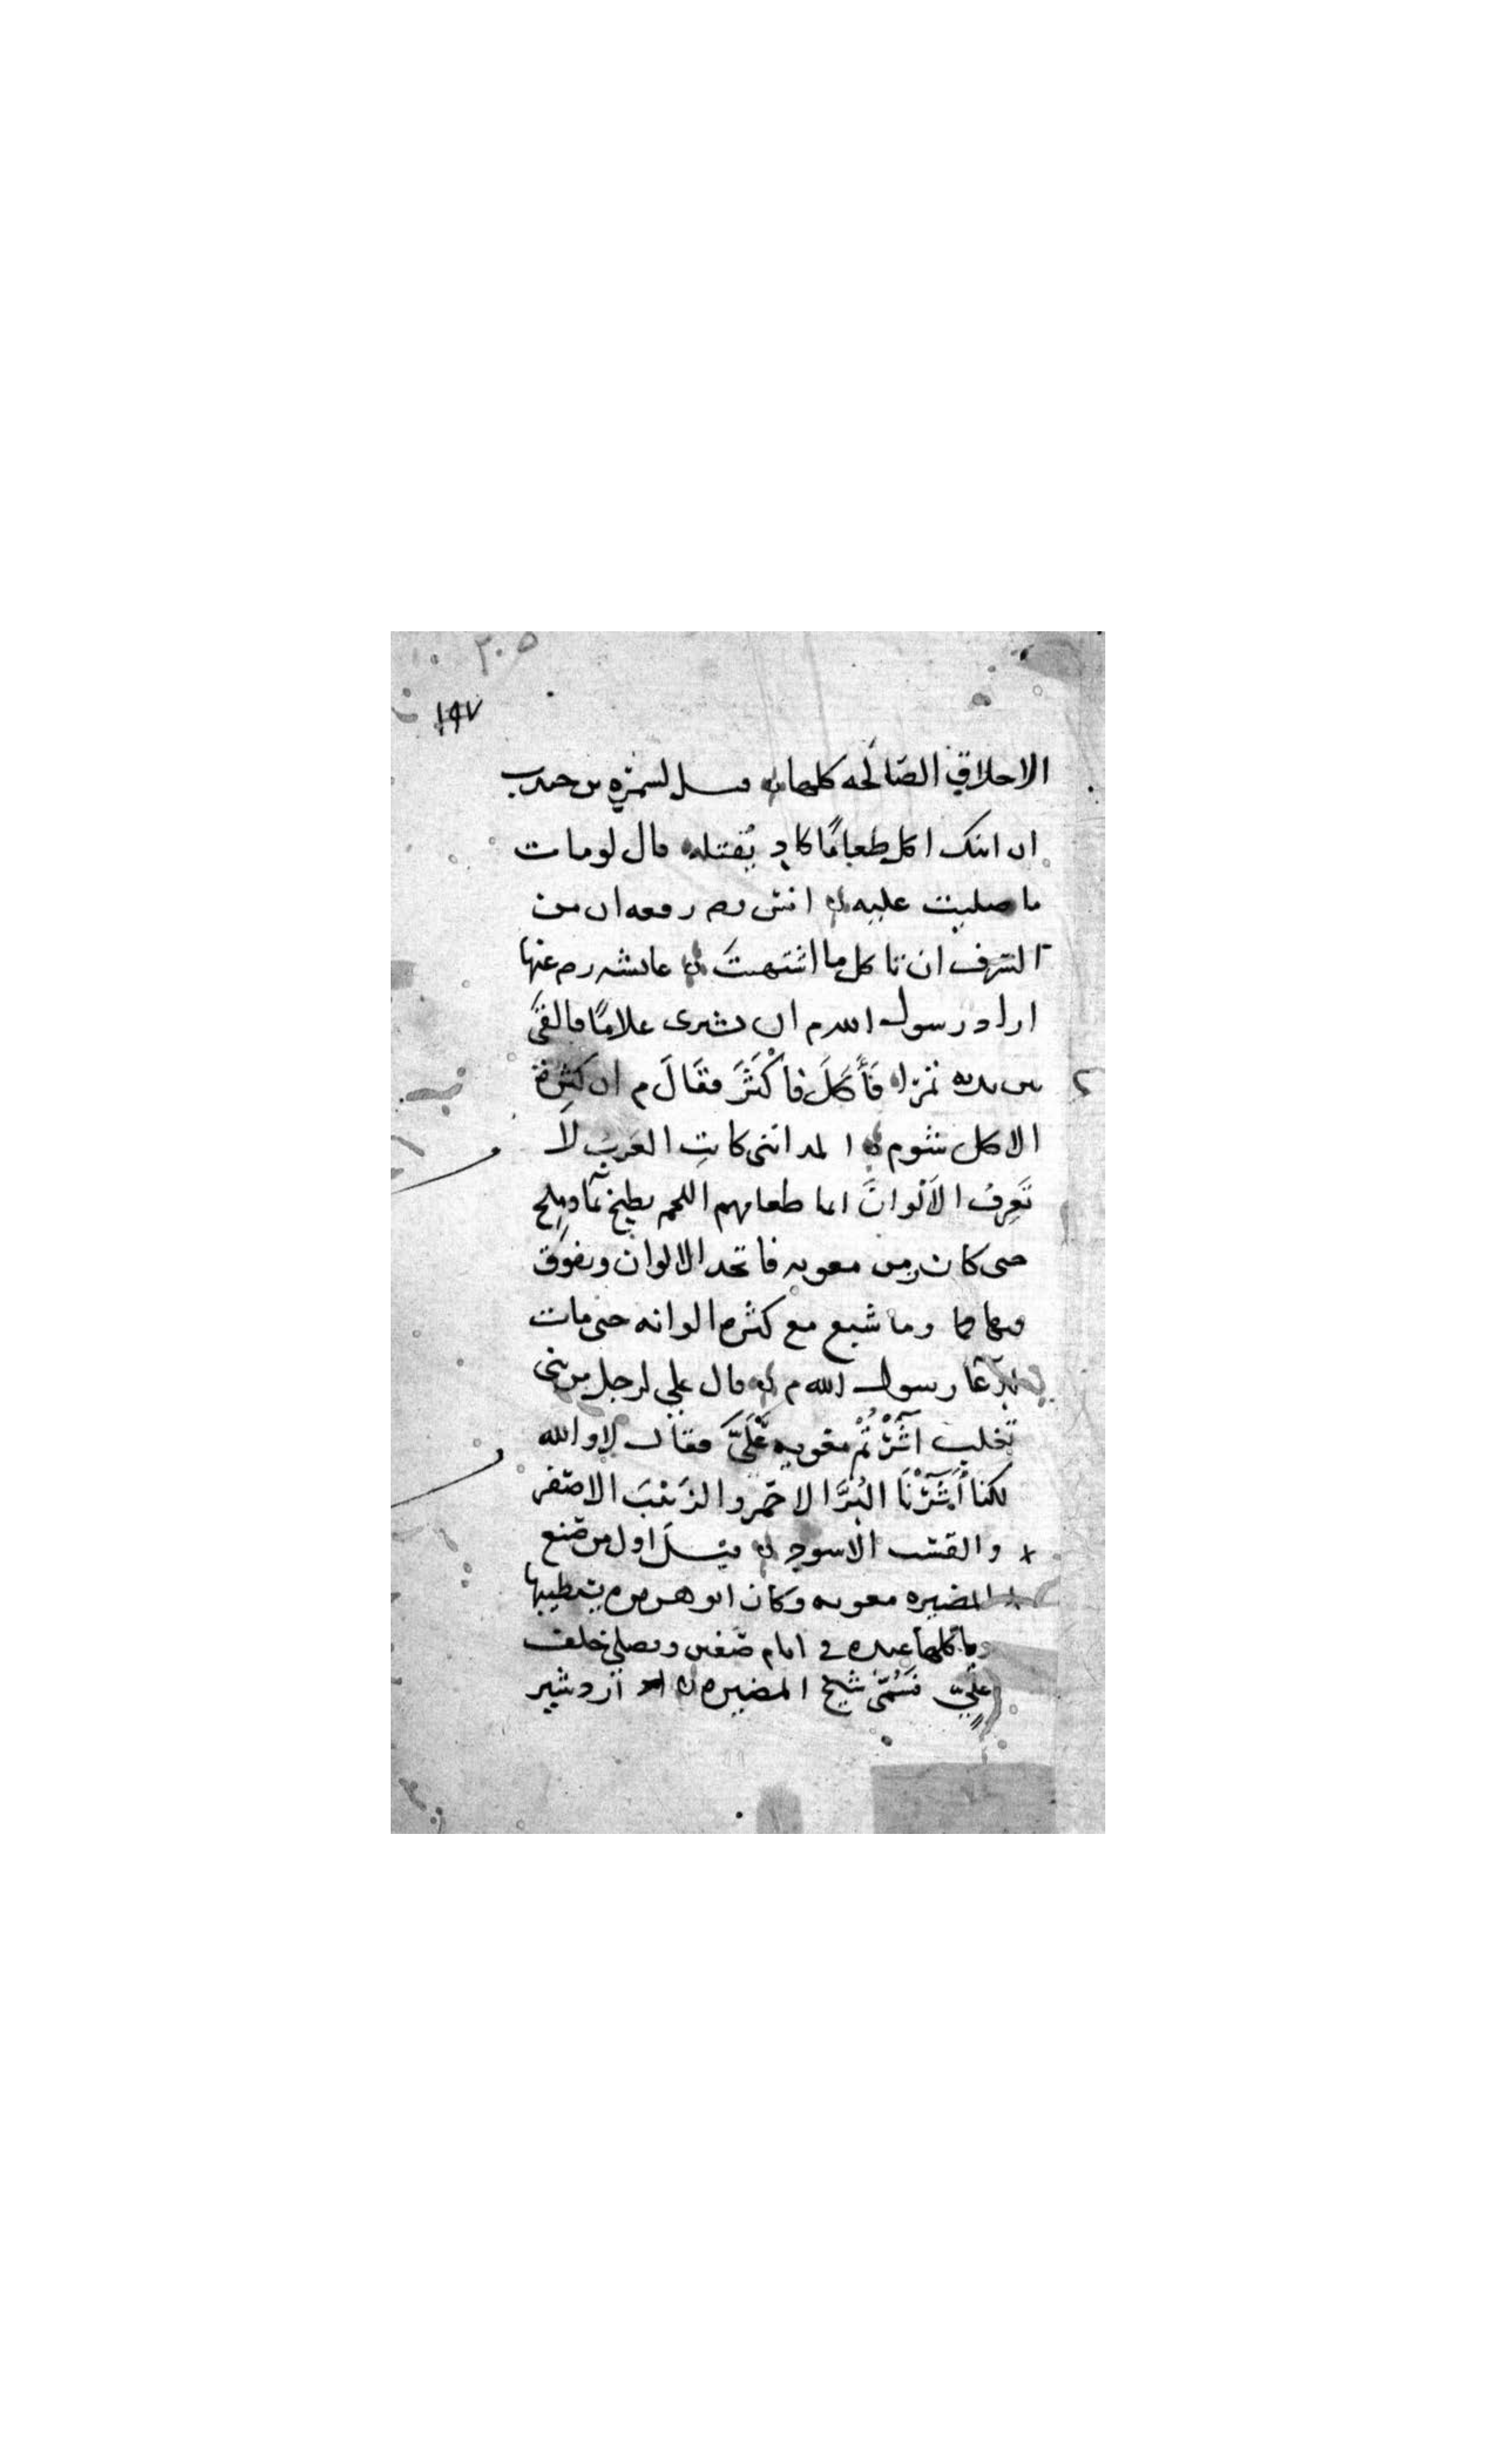 ٢٠٥
١٩٧
الاخلاق الصالحه كلها ه قيل لسمره بن جندب
ان ابنك اكل طعامًا كاد يُقتله قال لو مات
ما صليت عليه ه انس رضه رفعه ان من
السرف ان تاكل ما اشتهيت ه عائشه رض عنها
اراد رسول الله م ان يشترى غلامًا فالقى
بين يديه تمرًا ه فَأَكَلَ فأَكْثَرَ فقَالَ م ان كثرة
الاكل شوم ه المدائنى كانتِ العَرَبُ لَا
تَعرِفُ الأَلْوانَ انما طعامهم اللحم يطبخ بماء وملح
حتى كان زمن معويه فاتخذ الالوان وتفوق
فيها وما شبع مع كثره الوانه حتى مات
بدعا رسول الله م ه قال علي لرجل من بنى
تغلب آثَرْتُمْ معويه عَلَيَّ فقال لا والله
لكنا آثَرْنَا البُرَّ الاحمر والزيت الاصفر
والقسب الاسود ه قيل اول من صنع
المضيره معويه وكان ابو هريره يستطيبها
وياكلها عنده في ايام صفين ويصلي خلف
عليٍّ فسُمّى شيخ المضيره ه اردشير